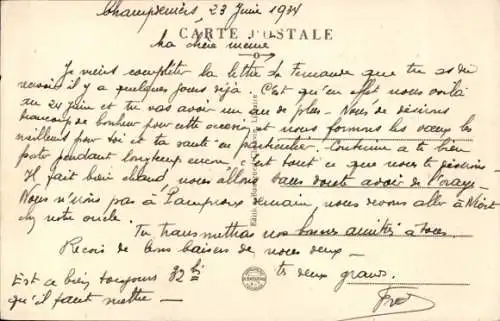 Champdeniers, 23 Juin 1934
CARTE POSTALE
Ma chère meme
Je viens completer la lettre de Fernande que tu as dû
recevoir il y a quelques jours déjà. C'est qu'en effet nous voilà
au 24 Juin et tu vas avoir un an de plus – Nous te désirons
beaucoup de bonheur pour cette occasion et nous formons les vœux les
meilleurs pour toi et ta santé en particulier. Continue à te bien
porter pendant longtemps encore, c'est tout ce que nous te désirons –
Il fait bien chaud, nous allons sans doute avoir de l'orage –
Nous n'irons pas à Pamproux demain, nous devons aller à Niort
chez notre oncle.
Tu transmettras nos bonnes amitiés à tous.
Reçois de bons baisers de nous deux –
Est ce bien toujours 32 bis
qu'il faut mettre –
tes deux grands.
Fred